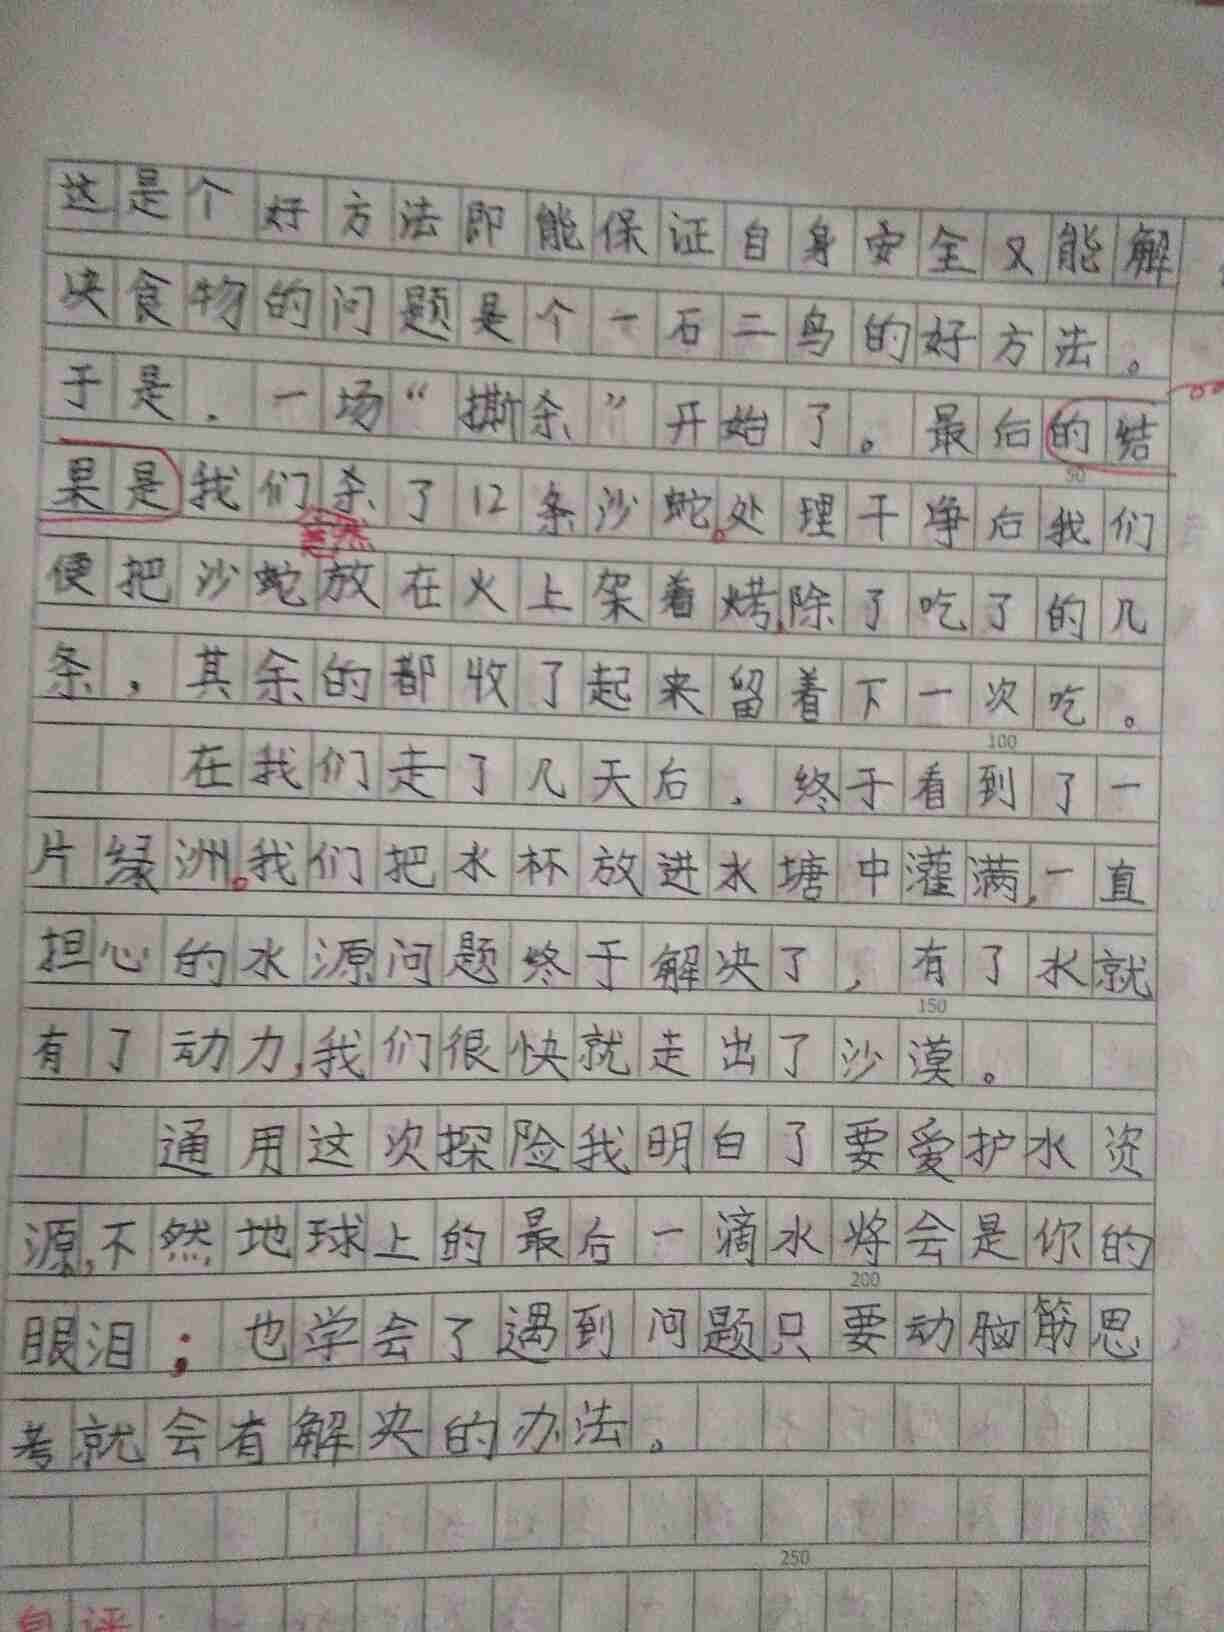 这是个好方法即能保证自身安全又能解
决食物的问题是个一石二鸟的好方法。
于是，一场“撕杀”开始了。最后的结
果是我们杀了12条沙蛇。处理干净后我们
竟然
便把沙蛇放在火上架着烤，除了吃了的几
条，其余的都收了起来留着下一次吃。
100
在我们走了几天后，终于看到了一
片绿洲。我们把水杯放进水塘中灌满，一直
担心的水源问题终于解决了，有了水就
150
有了动力，我们很快就走出了沙漠。
通用这次探险我明白了要爱护水资
源，不然地球上的最后一滴水将会是你的
200
眼泪；也学会了遇到问题只要动脑筋思
考就会有解决的办法。
250
自评：